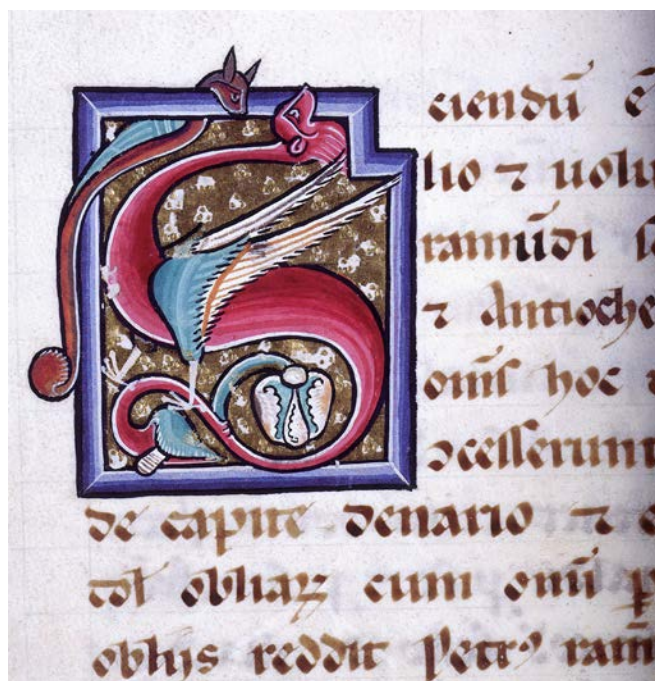 Sciendū ē
lio ⁊ uolu
ramūdi
⁊ Antioche
om̄s hoc
ↄcesserunt
de capite denario ⁊
tol obliaꝝ cum om̄i
oblijs reddit Petrꝰ ram̄